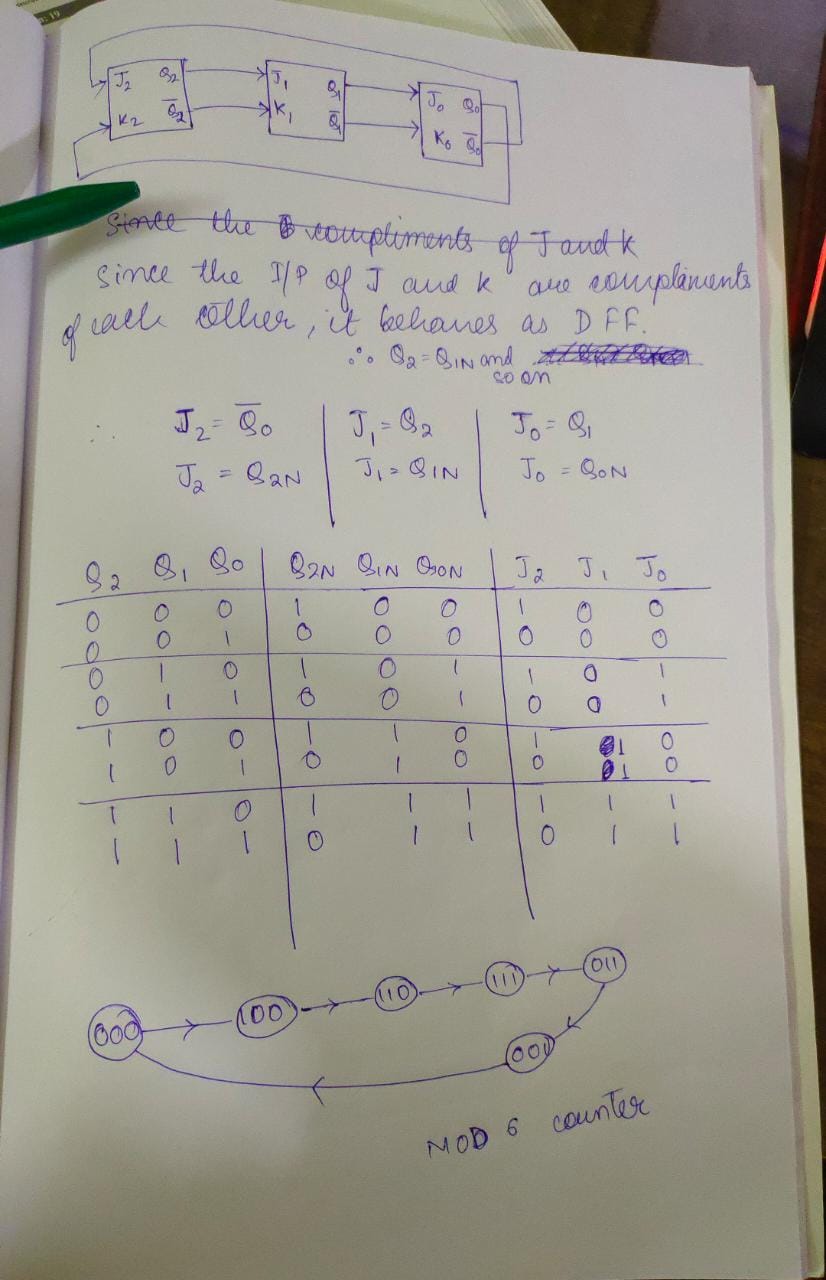 : 19
J2 Q2 J1 Q1 J0 Q0
K2 Q̅2 K1 Q̅1 K0 Q̅0
Since the compliments of J and K
Since the I/P of J and K are compliments
of each other, it behaves as D FF.
∴ Q2 = Q1N and
so on
∴ J2 = Q̅0 | J1 = Q2 | J0 = Q1
J2 = Q2N | J1 = Q1N | J0 = Q0N
Q2 Q1 Q0 | Q2N Q1N Q0N | J2 J1 J0
0 0 0 | 1 0 0 | 1 0 0
0 0 1 | 0 0 0 | 0 0 0
0 1 0 | 1 0 1 | 1 0 1
0 1 1 | 0 0 1 | 0 0 1
1 0 0 | 1 1 0 | 1 1 0
1 0 1 | 0 1 0 | 0 1 0
1 1 0 | 1 1 1 | 1 1 1
1 1 1 | 0 1 1 | 0 1 1
000 100 110 111 011
001
MOD 6 counter